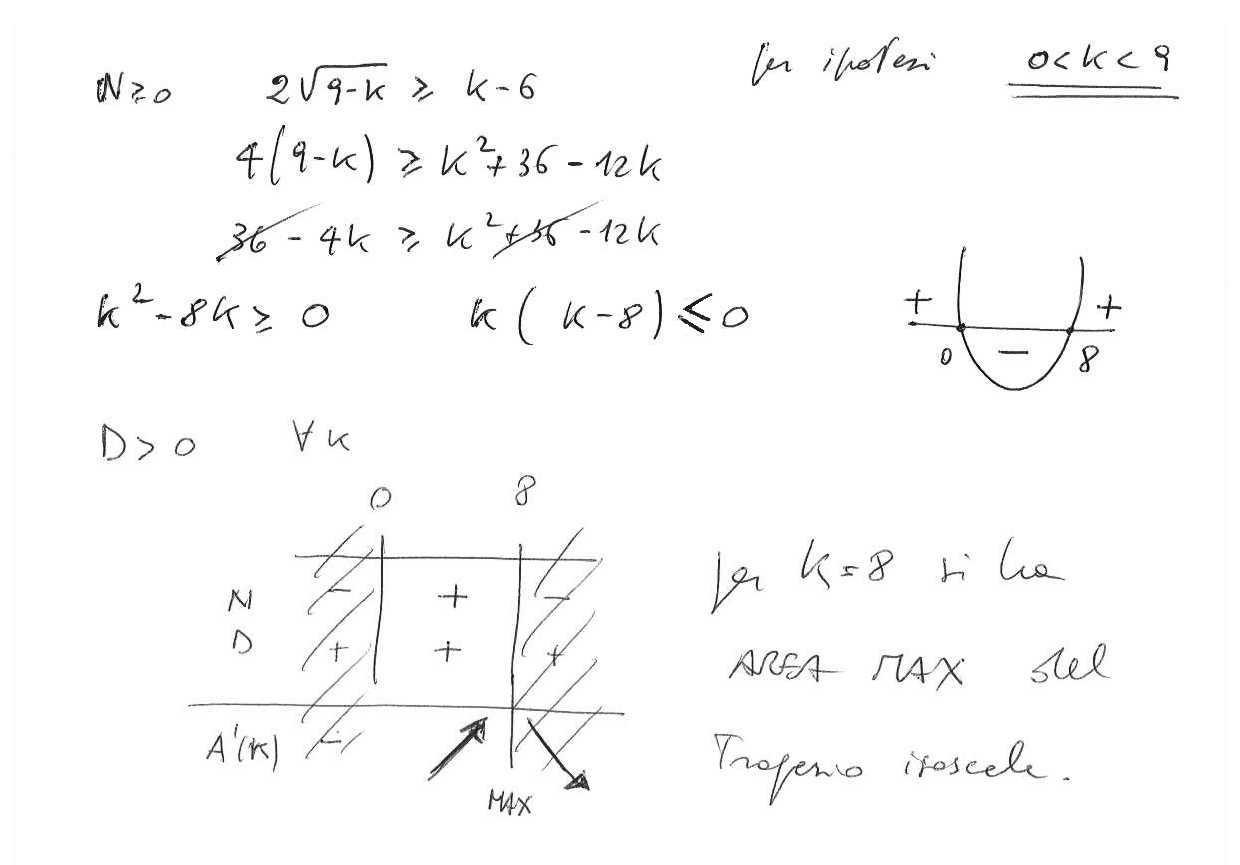 per ipotesi 0<k<9
N≥0 2√9-k ≥ k-6
4(9-k) ≥ k²+36-12k
36-4k ≥ k²+36-12k
k²-8k≥0 k(k-8)≤0
+ - +
0 8
D>0 ∀k
0 8
N - + -
D + + +
A'(k) -
MAX
per k=8 si ha
AREA MAX del
Trapezio isoscele.